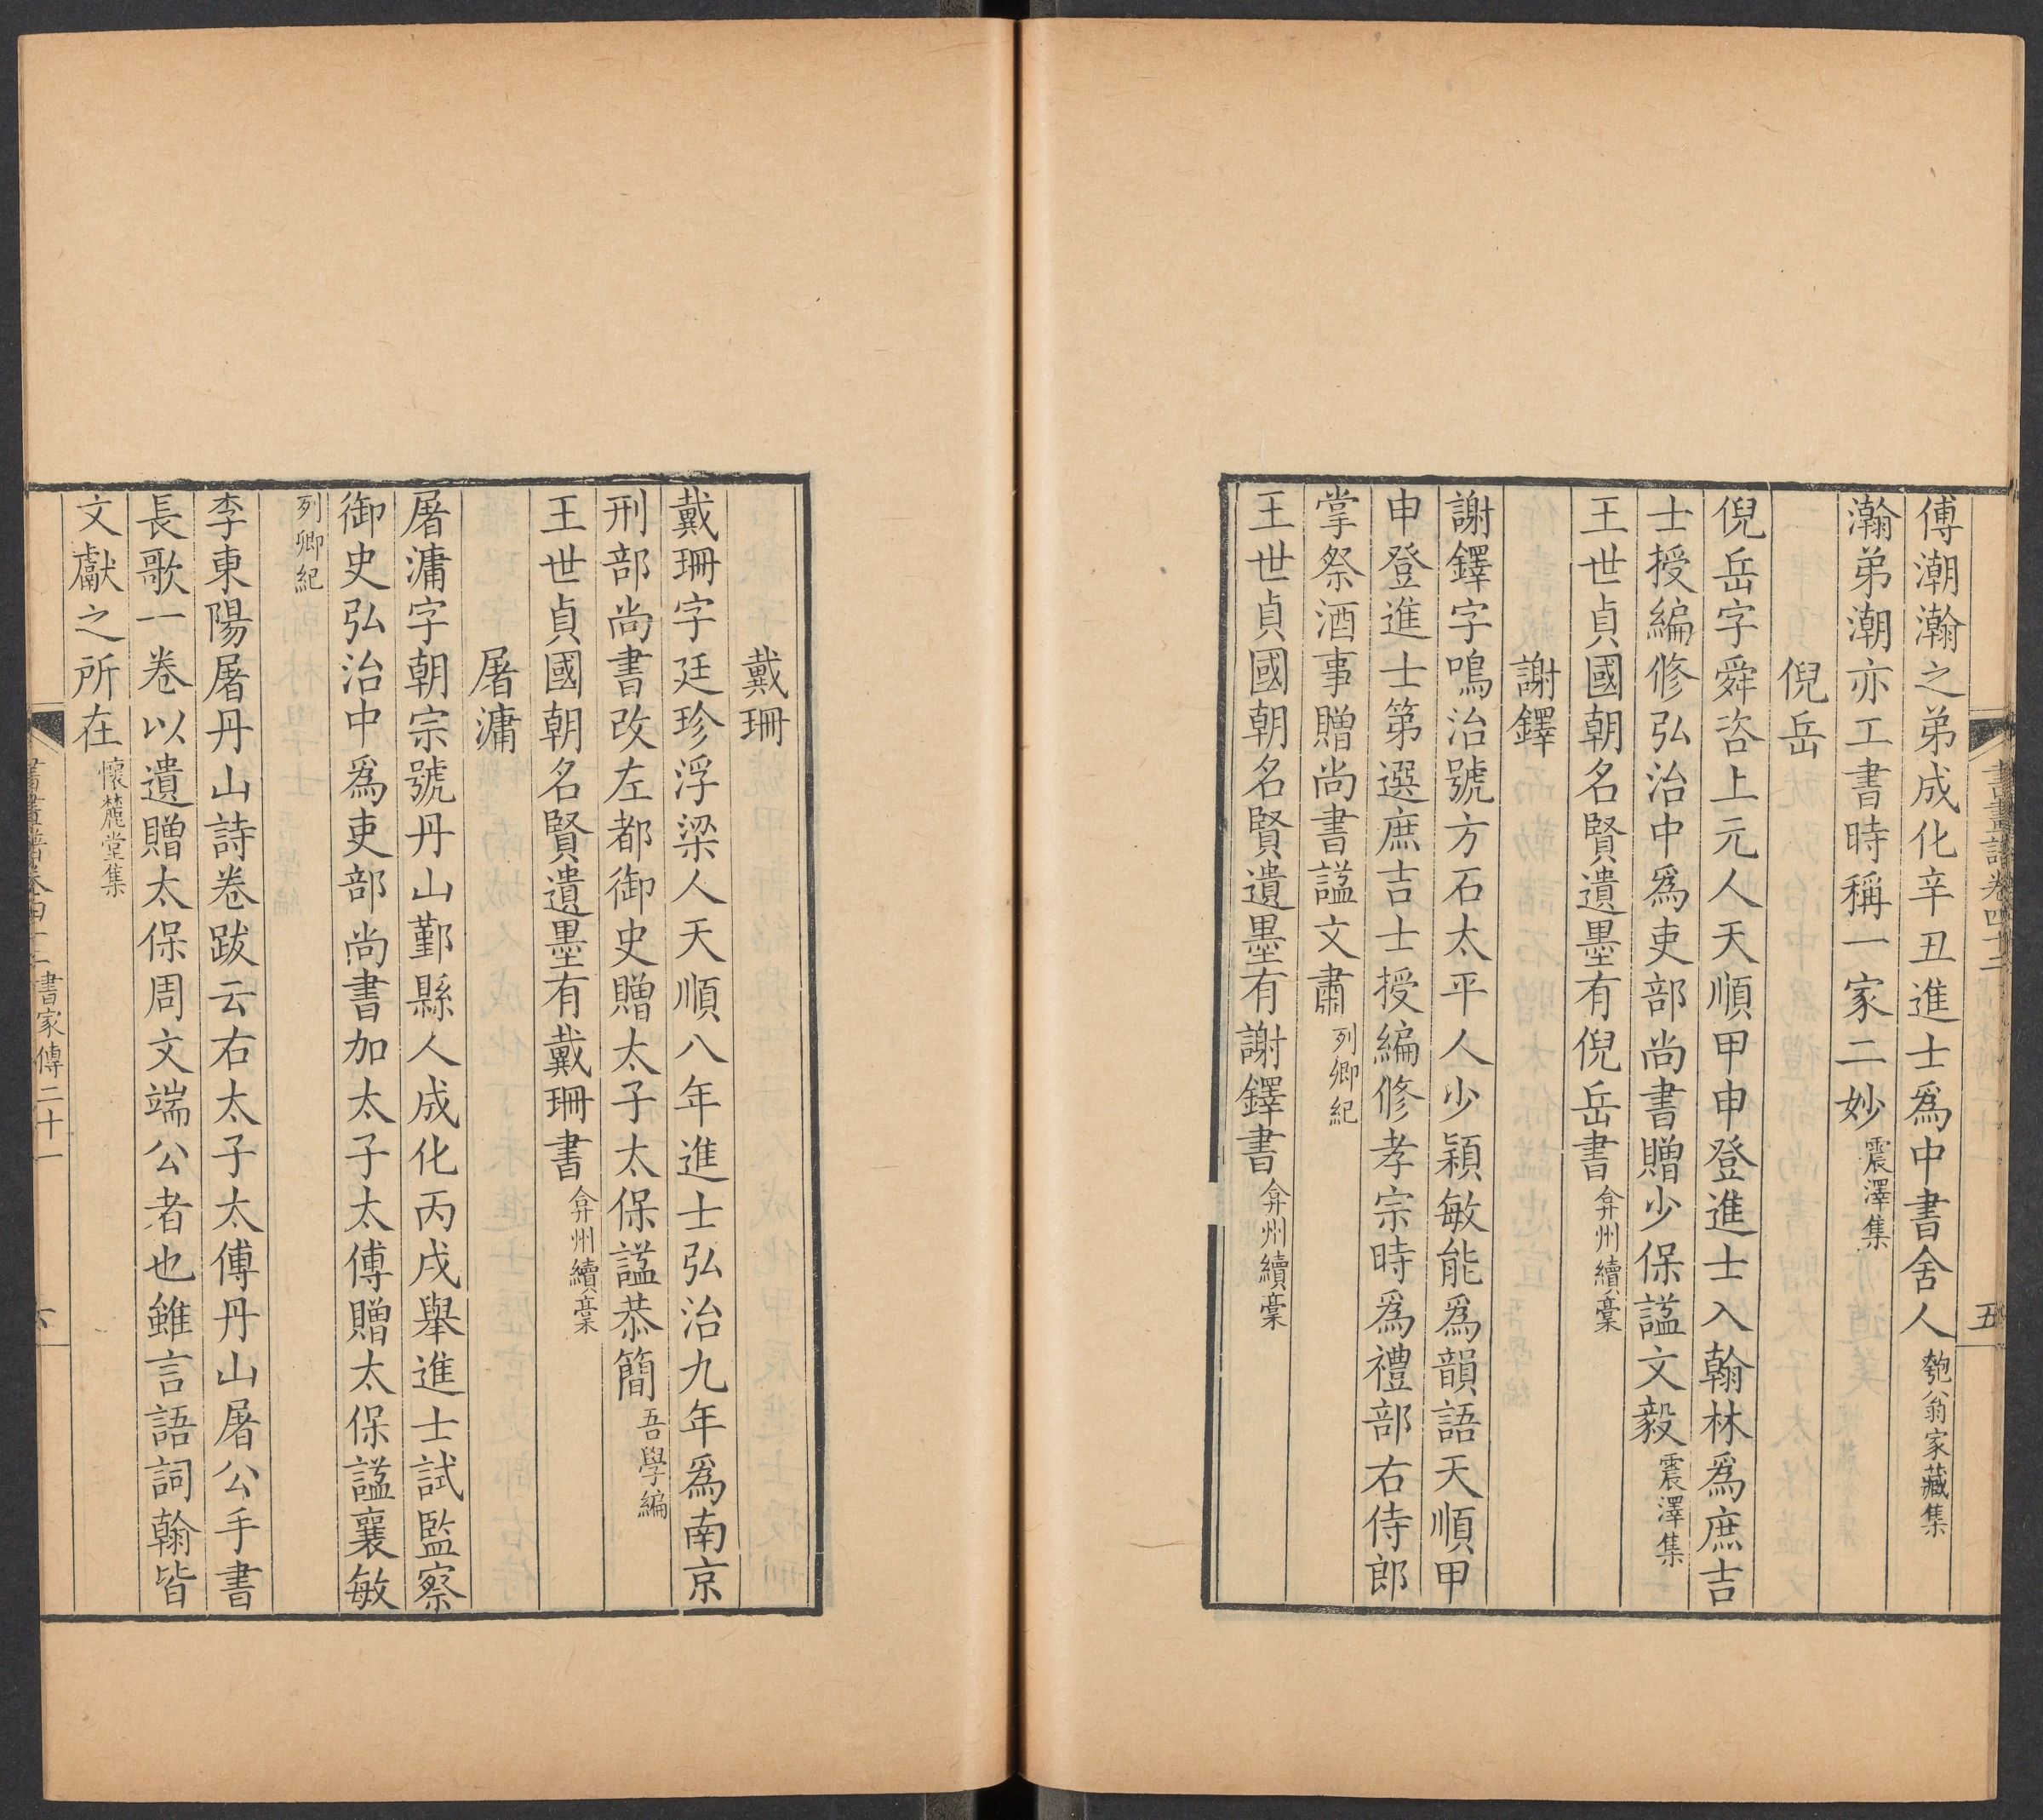 傅潮瀚之弟成化辛丑進士爲中書舍人匏翁家藏集
瀚弟潮亦工書時稱一家二妙震澤集
倪岳
倪岳字舜咨上元人天順甲申登進士入翰林爲庶吉
士授編修弘治中爲吏部尚書贈少保諡文毅震澤集
王世貞國朝名賢遺墨有倪岳書弇州續稾
謝鐸
謝鐸字鳴治號方石太平人少穎敏能爲韻語天順甲
申登進士第選庶吉士授編修孝宗時爲禮部右侍郎
掌祭酒事贈尚書諡文肅列卿紀
王世貞國朝名賢遺墨有謝鐸書弇州續稾
五
戴珊
戴珊字廷珍浮梁人天順八年進士弘治九年爲南京
刑部尚書改左都御史贈太子太保諡恭簡吾學編
王世貞國朝名賢遺墨有戴珊書弇州續稾
屠滽
屠滽字朝宗號丹山鄞縣人成化丙戌舉進士試監察
御史弘治中爲吏部尚書加太子太傅贈太保諡襄敏
列卿紀
李東陽屠丹山詩卷跋云右太子太傅丹山屠公手書
長歌一卷以遺贈太保周文端公者也雖言語詞翰皆
文獻之所在懷麓堂集
書家傳二十一